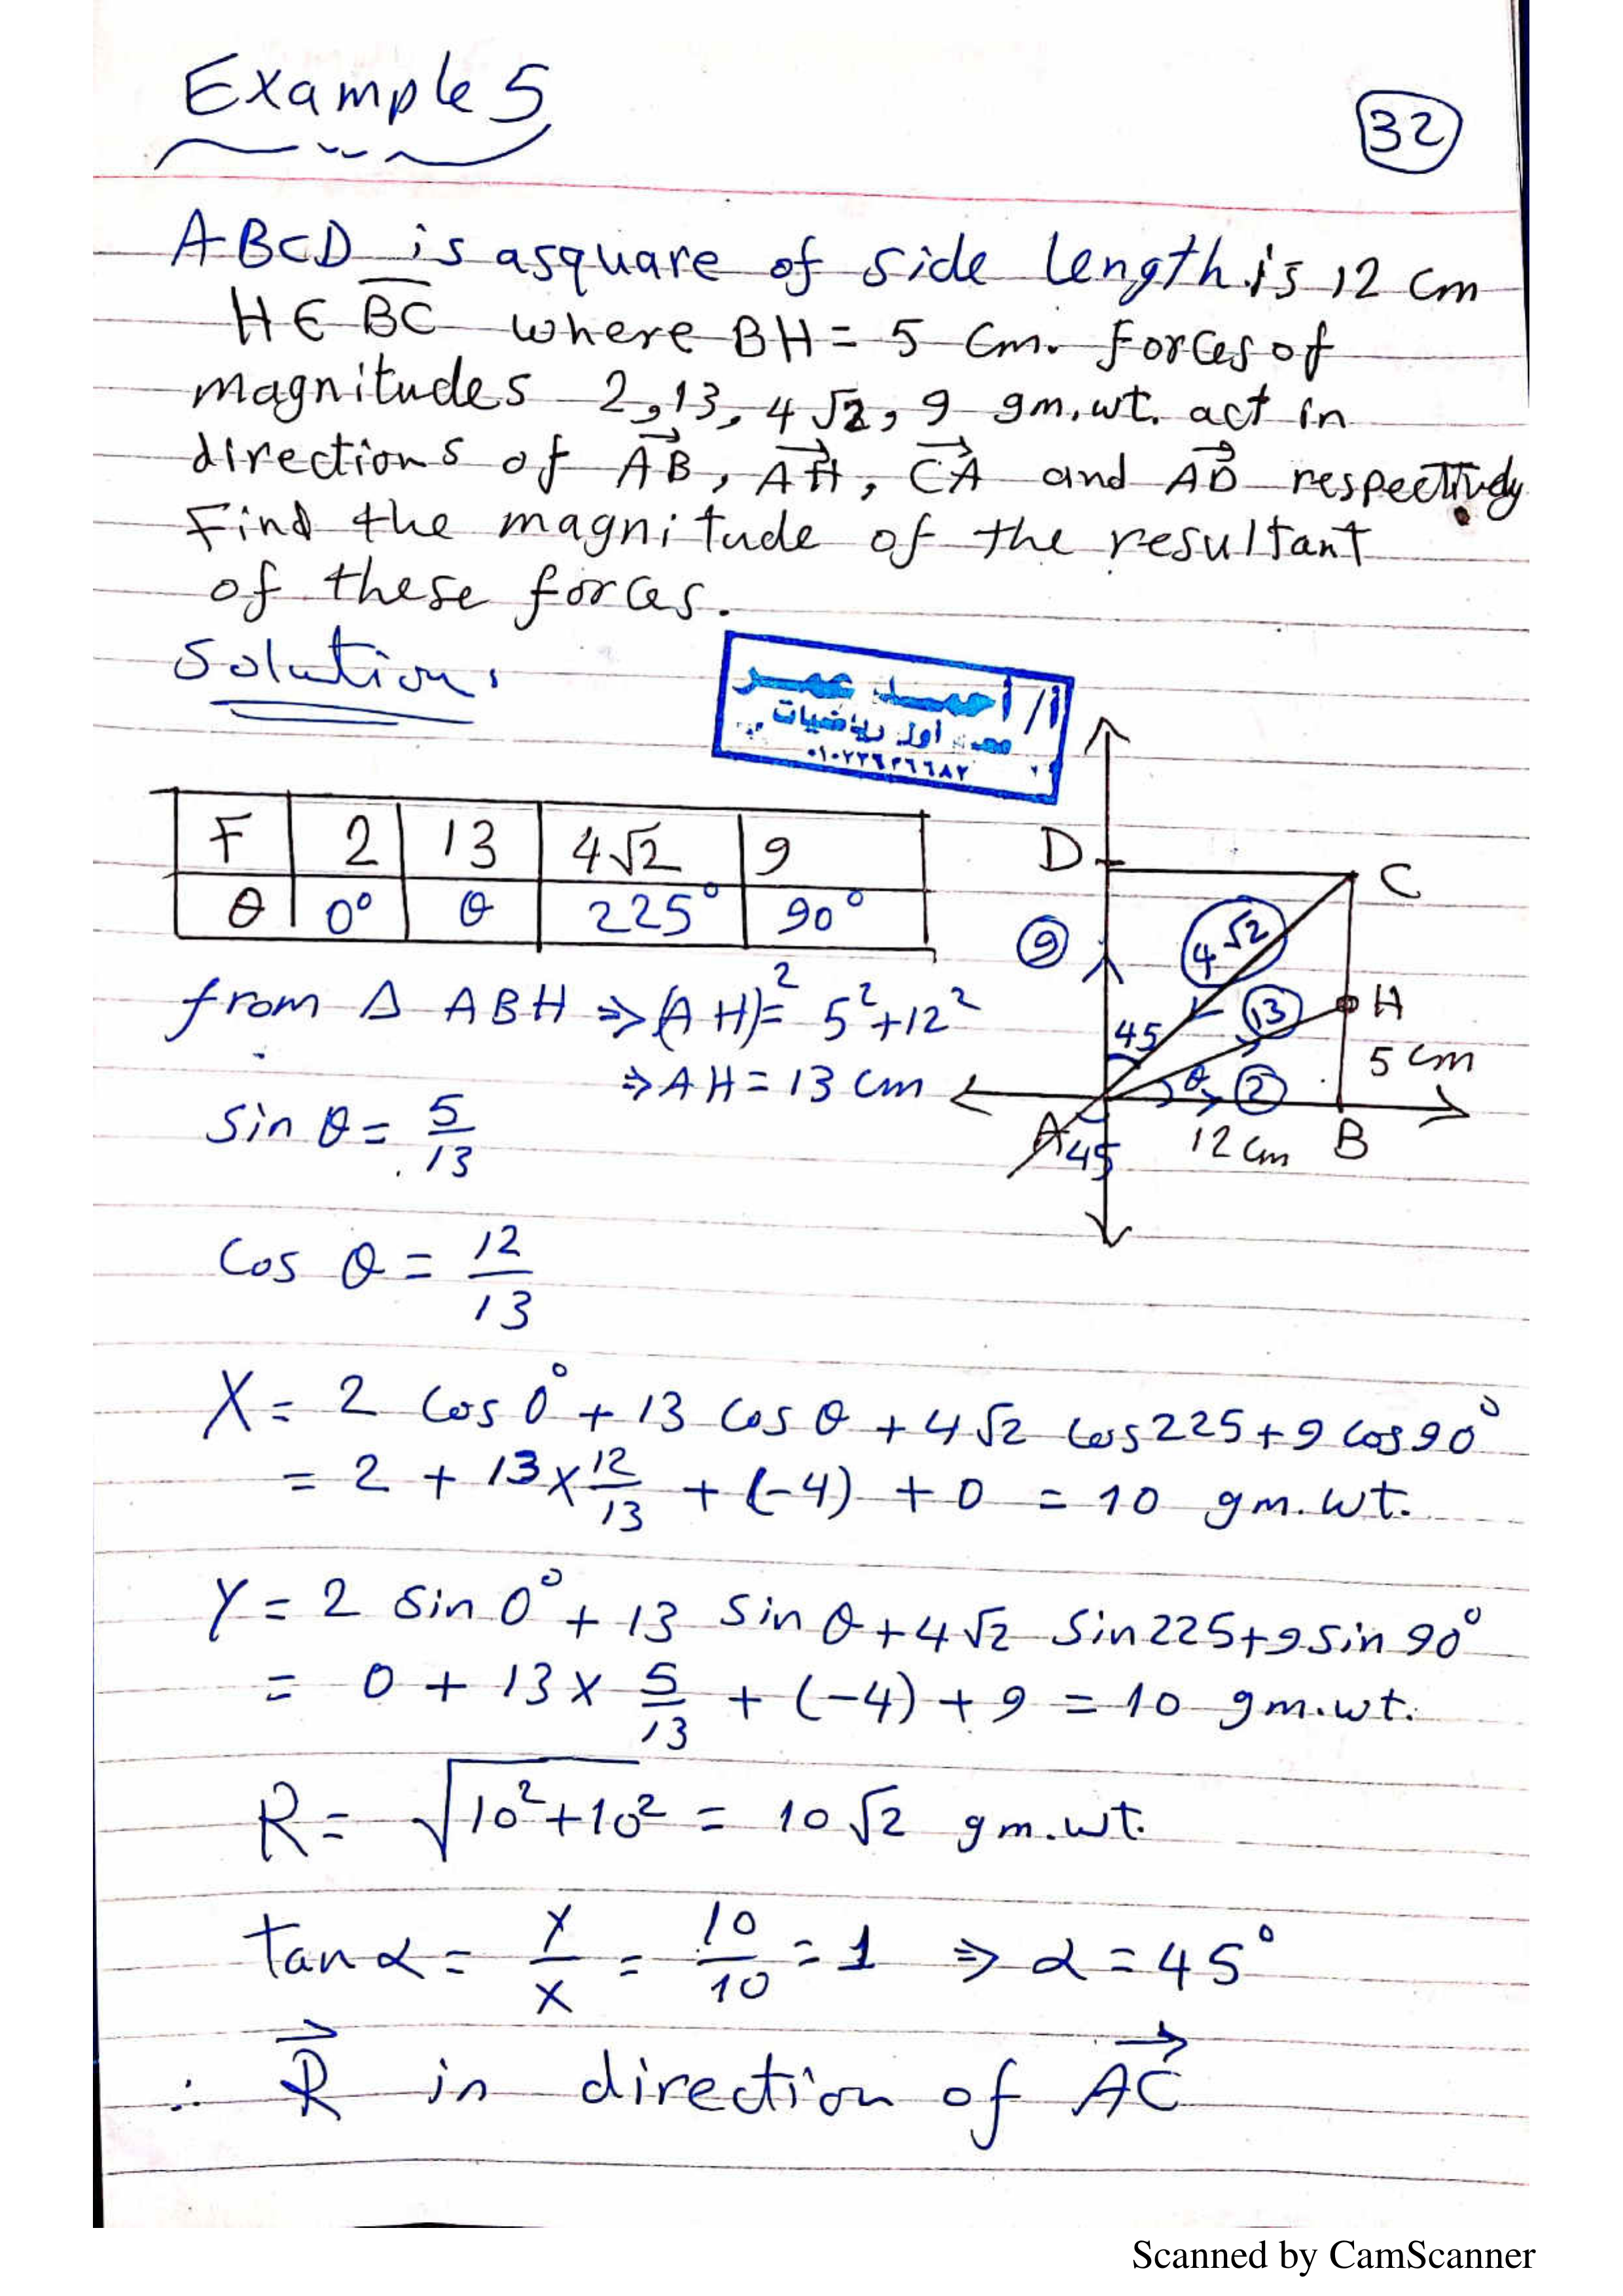 Example 5
32
ABCD is a square of side length is 12 cm
H ∈ BC where BH = 5 cm. Forces of
magnitudes 2, 13, 4√2, 9 gm.wt. act in
directions of AB, AH, CA and AD respectively
Find the magnitude of the resultant
of these forces.
Solution.
أ/ أحمد عمر
أول رياضيات
F 2 13 4√2 9
θ 0° θ 225° 90°
D C
9 4√2
13 H
45 5 cm
θ 2
A 45 12 cm B
from Δ ABH ⇒ (AH)² = 5² + 12²
⇒ AH = 13 cm
sin θ = 5/13
cos θ = 12/13
X = 2 cos 0° + 13 cos θ + 4√2 cos 225 + 9 cos 90°
= 2 + 13 × 12/13 + (-4) + 0 = 10 gm.wt.
Y = 2 sin 0° + 13 sin θ + 4√2 sin 225 + 9 sin 90°
= 0 + 13 × 5/13 + (-4) + 9 = 10 gm.wt.
R = √10² + 10² = 10√2 gm.wt.
tan α = Y/X = 10/10 = 1 ⇒ α = 45°
∴ R in direction of AC
Scanned by CamScanner